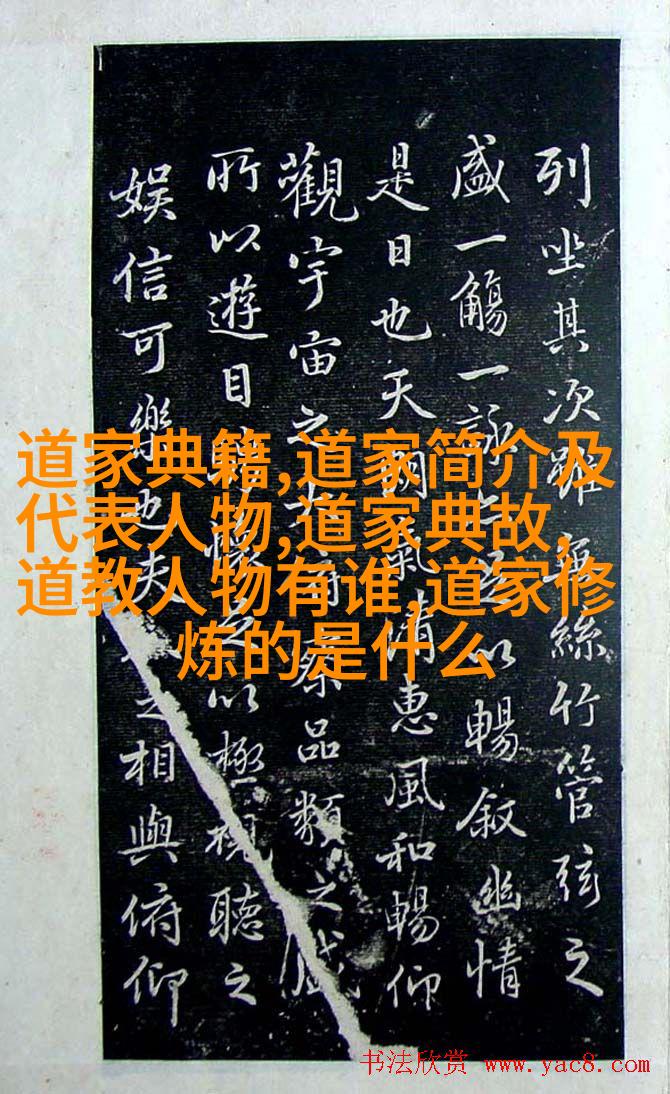 列坐其次雖無絲竹管弦之
盛一觴一詠以暢敘幽情
是日也天朗氣清惠風和暢仰
觀宇宙之察品類之盛
所以遊目懷以極視聽之
娛信可樂也夫之相與俯仰
道家典籍,道家简介及
代表人物,道家典故,
道教人物有谁,道家修
炼的是什么
书法欣赏 www.yac8.com